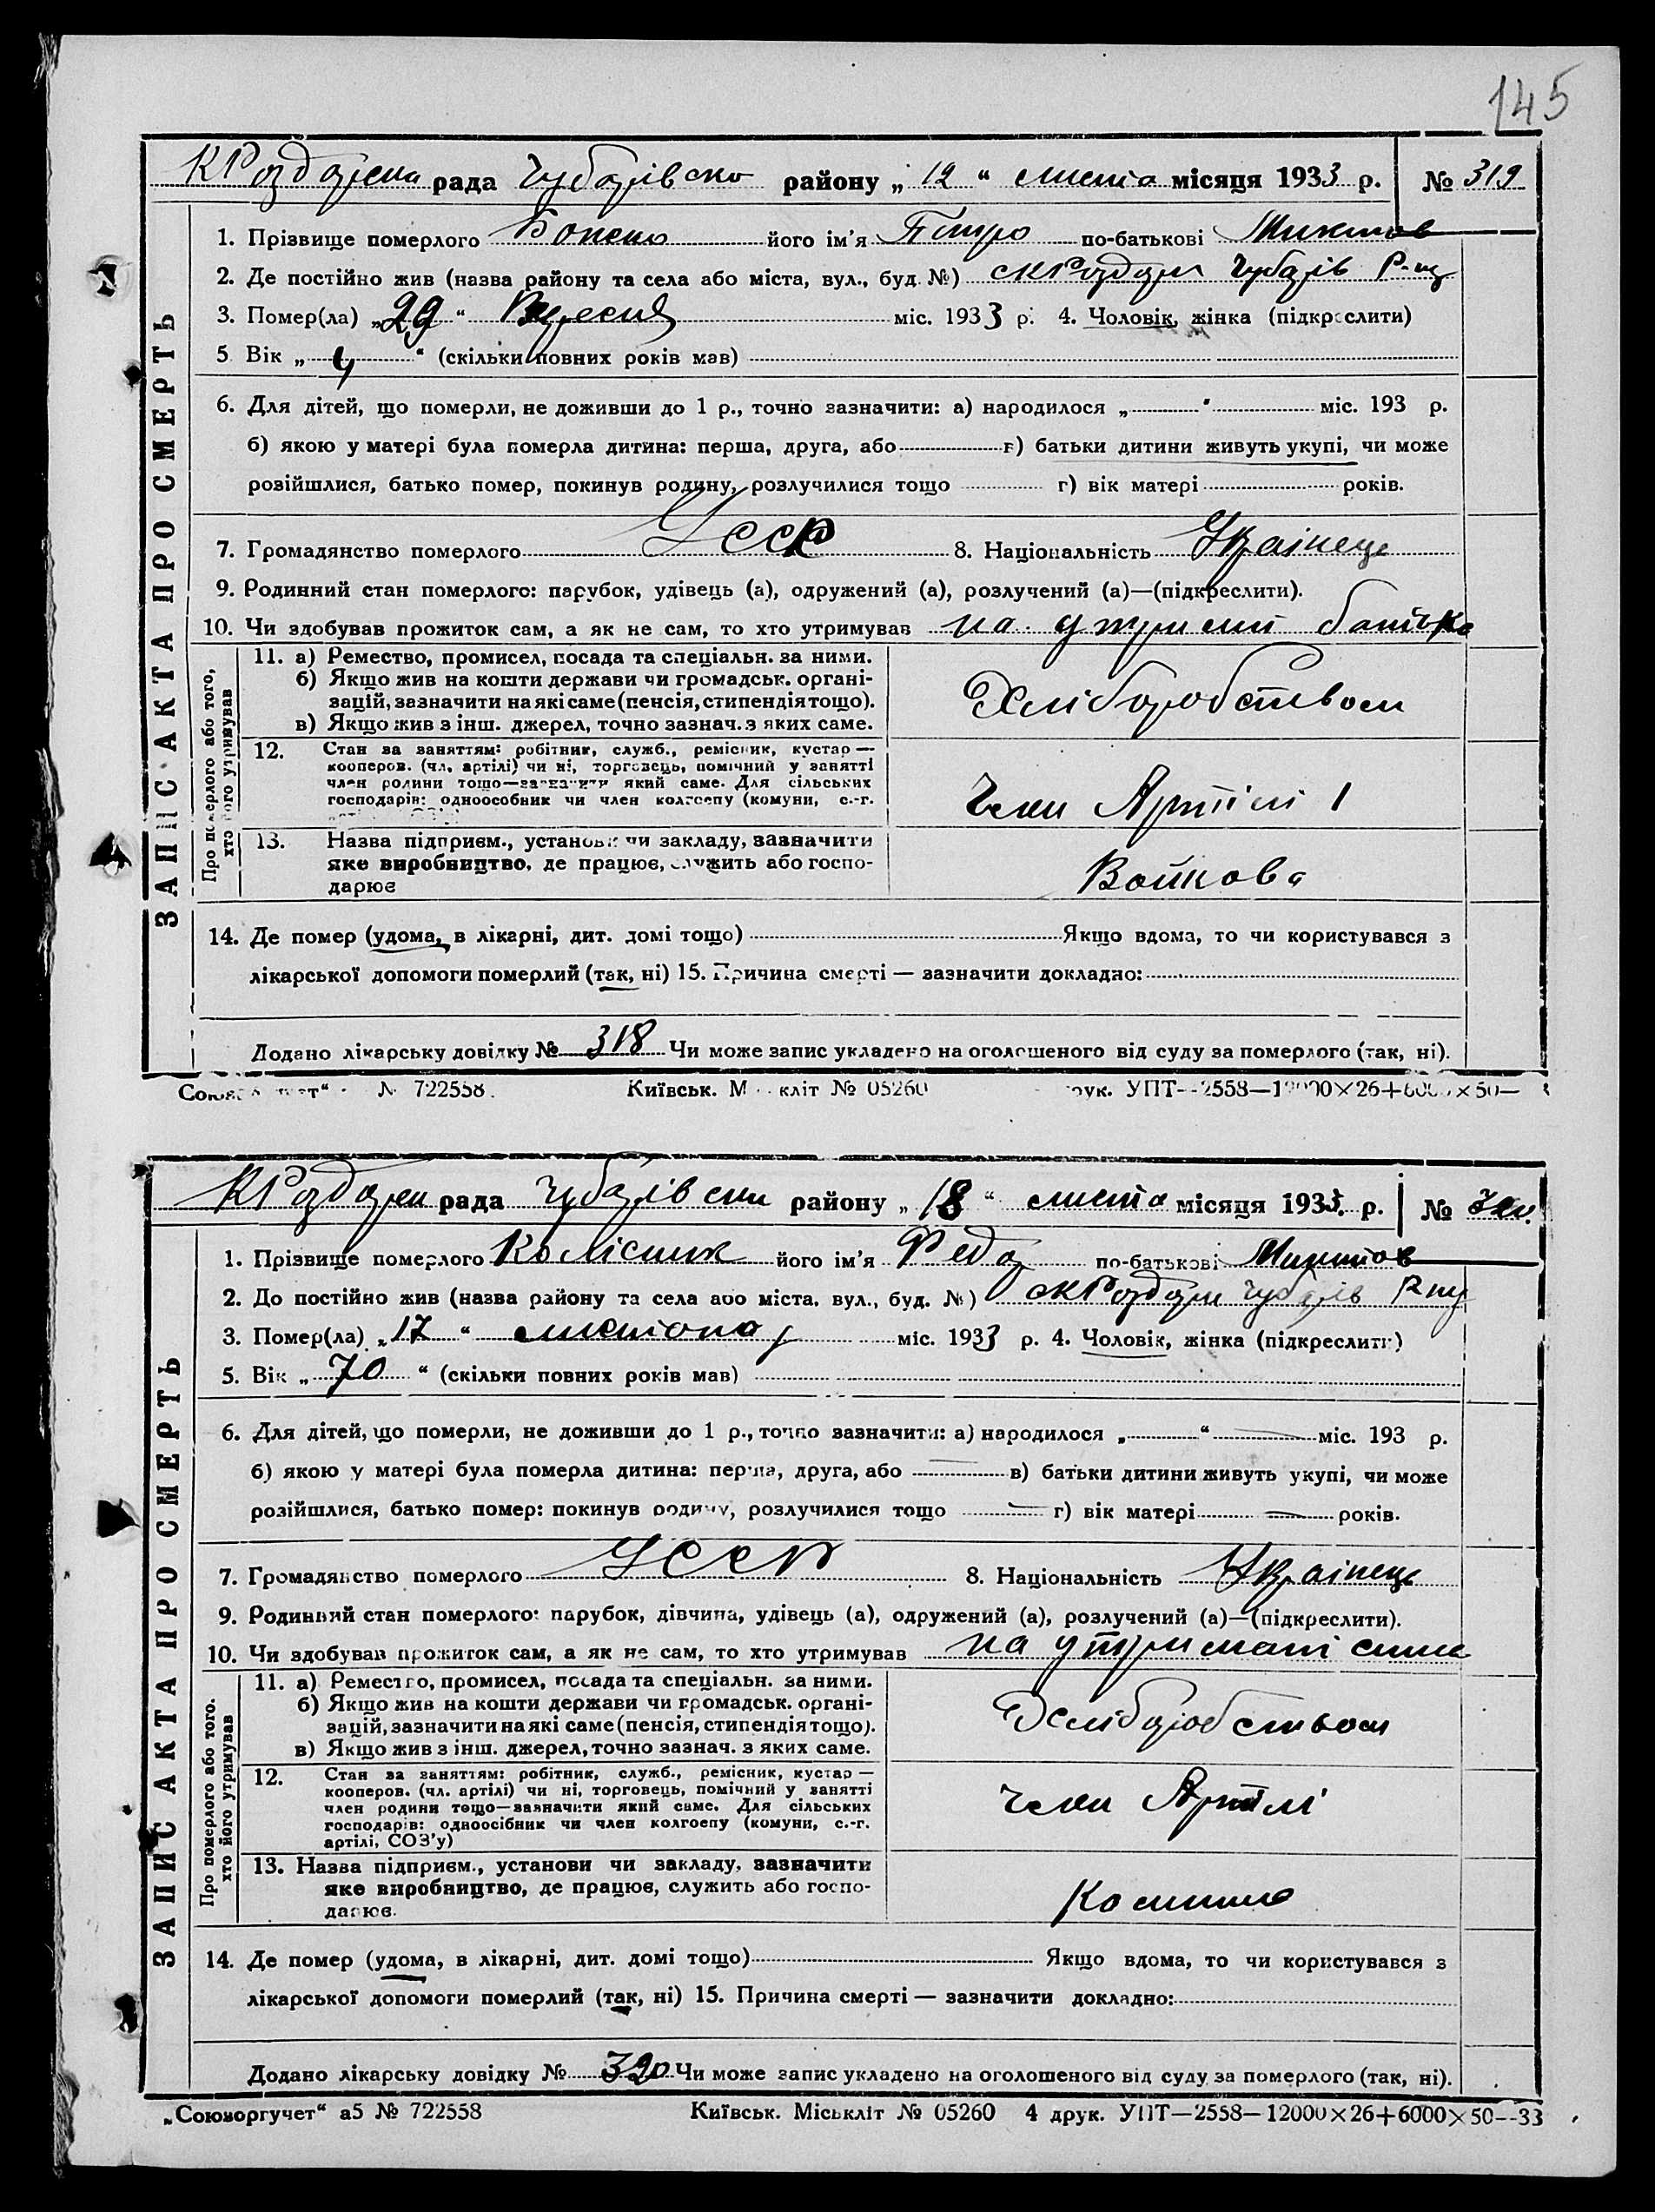 145
КРоздорська рада Чубарівсько району „ 12 “ листо місяця 1933 р. № 319
ЗАПИС АКТА ПРО СМЕРТЬ
1. Прізвище померлого його ім'я Петро по-батькові Микитов
2. Де постійно жив (назва району та села або міста, вул., буд. №) с КРоздори Чубарів Р-ну
3. Помер(ла) „29“ Вересня міс. 1933 р. 4. Чоловік, жінка (підкреслити)
5 Вік „ 4 “ (скільки повних років мав)
6. Для дітей, що померли, не доживши до 1 р., точно зазначити: а) народилося „ “ міс. 193 р.
б) якою у матері була померла дитина: перша, друга, або в) батьки дитини живуть укупі, чи може
розійшлися, батько помер, покинув родину, розлучилися тощо г) вік матері років.
7. Громадянство померлого УССР 8. Національність Українець
9. Родинний стан померлого: парубок, удівець (а), одружений (а), розлучений (а)—(підкреслити).
10. Чи здобував прожиток сам, а як не сам, то хто утримував на утримані батька
Про померлого або того, хто його утримував
11. а) Ремество, промисел, посада та спеціальн. за ними.
б) Якщо жив на кошти держави чи громадськ. органі-
зацій, зазначити на які саме (пенсія, стипендія тощо).
в) Якщо жив з інш. джерел, точно зазнач. з яких саме.
Хліборобством
12. Стан за заняттям: робітник, служб., ремісник, кустар —
кооперов. (чл. артілі) чи ні, торговець, помічний у занятті
член родини тощо—зазначити який саме. Для сільських
господарів: одноособник чи член колгоспу (комуни, с.-г.
Член Артілі 1
13. Назва підприєм., установи чи закладу, зазначити
яке виробництво, де працює, служить або госпо-
дарює
Войкова
14. Де помер (удома, в лікарні, дит. домі тощо) Якщо вдома, то чи користувався з
лікарської допомоги померлий (так, ні) 15. Причина смерті — зазначити докладно:
Додано лікарську довідку № 318 Чи може запис укладено на оголошеного від суду за померлого (так, ні).
№ 722558. Київськ. М кліт № 05260 друк. УПТ—2558—12000×26+6000×50—
КРоздорськ рада Чубарівски району „ 18 “ листо місяця 1933 р. № 320.
ЗАПИС АКТА ПРО СМЕРТЬ
1. Прізвище померлого Колісник його ім'я Федор по-батькові Микитов
2. До постійно жив (назва району та села або міста, вул., буд. №) с КРоздори Чубарів Р-ну
3. Помер(ла) „17“ листопад міс. 1933 р. 4. Чоловік, жінка (підкреслити)
5. Вік „ 70 “ (скільки повних років мав)
6. Для дітей, що померли, не доживши до 1 р., точно зазначити: а) народилося „ “ — міс. 193 р.
б) якою у матері була померла дитина: перша, друга, або — в) батьки дитини живуть укупі, чи може
розійшлися, батько помер: покинув родину, розлучилися тощо — г) вік матері — років.
7. Громадянство померлого УССР 8. Національність Українець
9. Родинний стан померлого: парубок, дівчина, удівець (а), одружений (а), розлучений (а)—(підкреслити).
10. Чи здобував прожиток сам, а як не сам, то хто утримував на утримані сина
Про померлого або того. хто його утримував
11. а) Ремество, промисел, посада та спеціальн. за ними.
б) Якщо жив на кошти держави чи громадськ. органі-
зацій, зазначити на які саме (пенсія, стипендія тощо).
в) Якщо жив з інш. джерел, точно зазнач. з яких саме.
Хліборобством
12. Стан за заняттям: робітник, служб., ремісник, кустар —
кооперов. (чл. артілі) чи ні, торговець, помічний у занятті
член родини тощо—зазначити який саме. Для сільських
господарів: одноосібник чи член колгоспу (комуни, с.-г.
артілі, СОЗ'у)
Член Артілі
13. Назва підприєм., установи чи закладу, зазначити
яке виробництво, де працює, служить або госпо-
дарює.
14. Де помер (удома, в лікарні, дит. домі тощо) Якщо вдома, то чи користувався з
лікарської допомоги померлий (так, ні) 15. Причина смерті — зазначити докладно:
Додано лікарську довідку № 320 Чи може запис укладено на оголошеного від суду за померлого (так, ні).
„Союзоргучет“ а5 № 722558 Київськ. Міськліт № 05260 4 друк. УПТ—2558—12000×26+6000×50--33